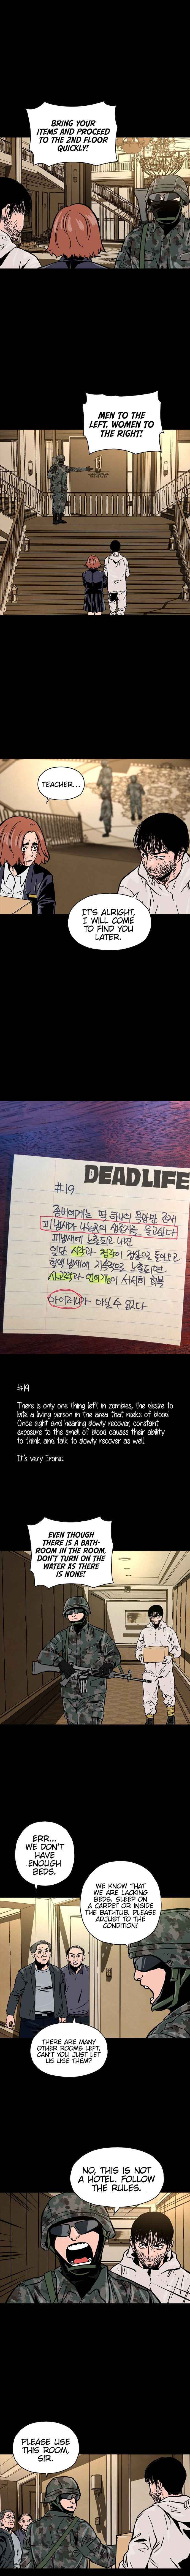 BRING YOUR
ITEMS AND PROCEED
TO THE 2ND FLOOR
QUICKLY!
MEN TO THE
LEFT, WOMEN TO
THE RIGHT!
TEACHER...
IT'S ALRIGHT,
I WILL COME
TO FIND YOU
LATER.
DEADLIFE
#19
좀비에게는 딱 하나의
피냄새
피냄새에 노출되고 나면
일단 시각과 청각이
#19
There is only one thing left in zombies, the desire to
bite a living person in the area that reeks of blood.
Once sight and hearing slowly recover, constant
exposure to the smell of blood causes their ability
to think and talk to slowly recover as well.
It's very Ironic.
EVEN THOUGH
THERE IS A BATH-
ROOM IN THE ROOM,
DON'T TURN ON THE
WATER AS THERE
IS NONE!
ERR...
WE DON'T
HAVE
ENOUGH
BEDS.
WE KNOW THAT
WE ARE LACKING
BEDS. SLEEP ON
A CARPET OR INSIDE
THE BATHTUB. PLEASE
ADJUST TO THE
CONDITION!
THERE ARE MANY
OTHER ROOMS LEFT,
CAN'T YOU JUST LET
US USE THEM?
NO, THIS IS NOT
A HOTEL. FOLLOW
THE RULES.
PLEASE USE
THIS ROOM,
SIR.